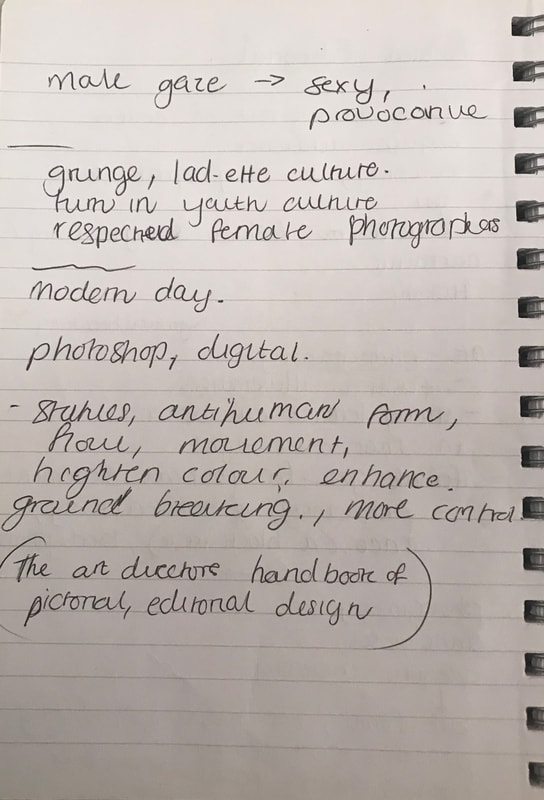 male gaze → sexy,
provocative
grunge, lad-ette culture.
turn in youth culture
respected female photographers
modern day.
photoshop, digital.
- statues, antihuman form,
movement,
highten colour, enhance.
ground breaking., more control.
The art directors handbook of
pictorial, editorial design